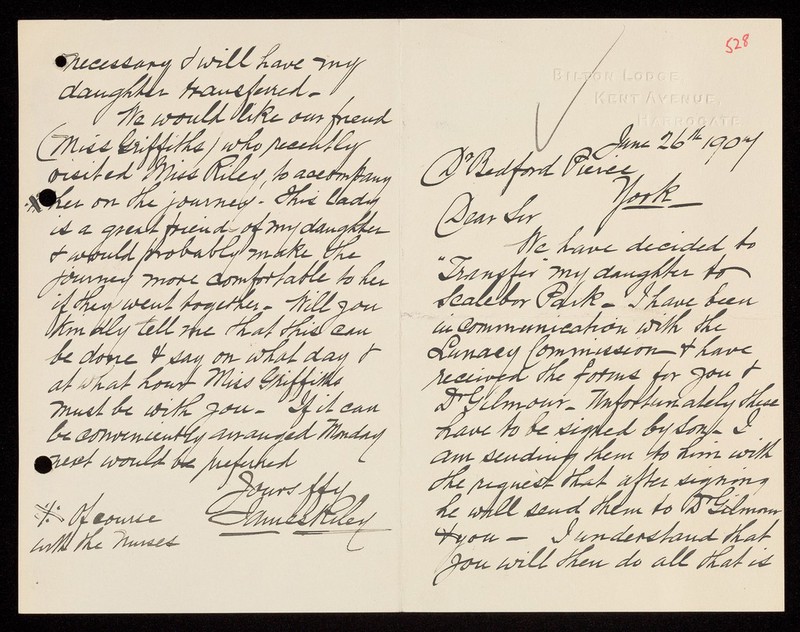 528
BILTON LODGE
KENT AVENUE.
HARROGATE
June 26th 1907
Dr Bedford Pierce
York
Dear Sir
We have decided to
"Transfer" my daughter to
Scalebor Park - I have been
in communication with the
Lunacy Commission & have
received the forms for you &
Dr Gilmour - Unfortunately these
have to be signed by son - I
am sending them to him with
the request that after signing
he will send them to Dr Gilmour
& you - I understand that
you will then do all that is
necessary & will have my
daughter transferred -
We would like our friend
(Miss Griffiths) who recently
visited Miss Riley, to accompany
her on the journey - This lady
is a great friend of my daughter
& would probably make the
journey more comfortable to her
if they went together - Will you
kindly tell me that this can
be done & say on what day &
at what hour Miss Griffiths
must be with you - If it can
be conveniently arranged Monday
next would be preferred
Yours ffy
James Riley
Of course
with the nurses